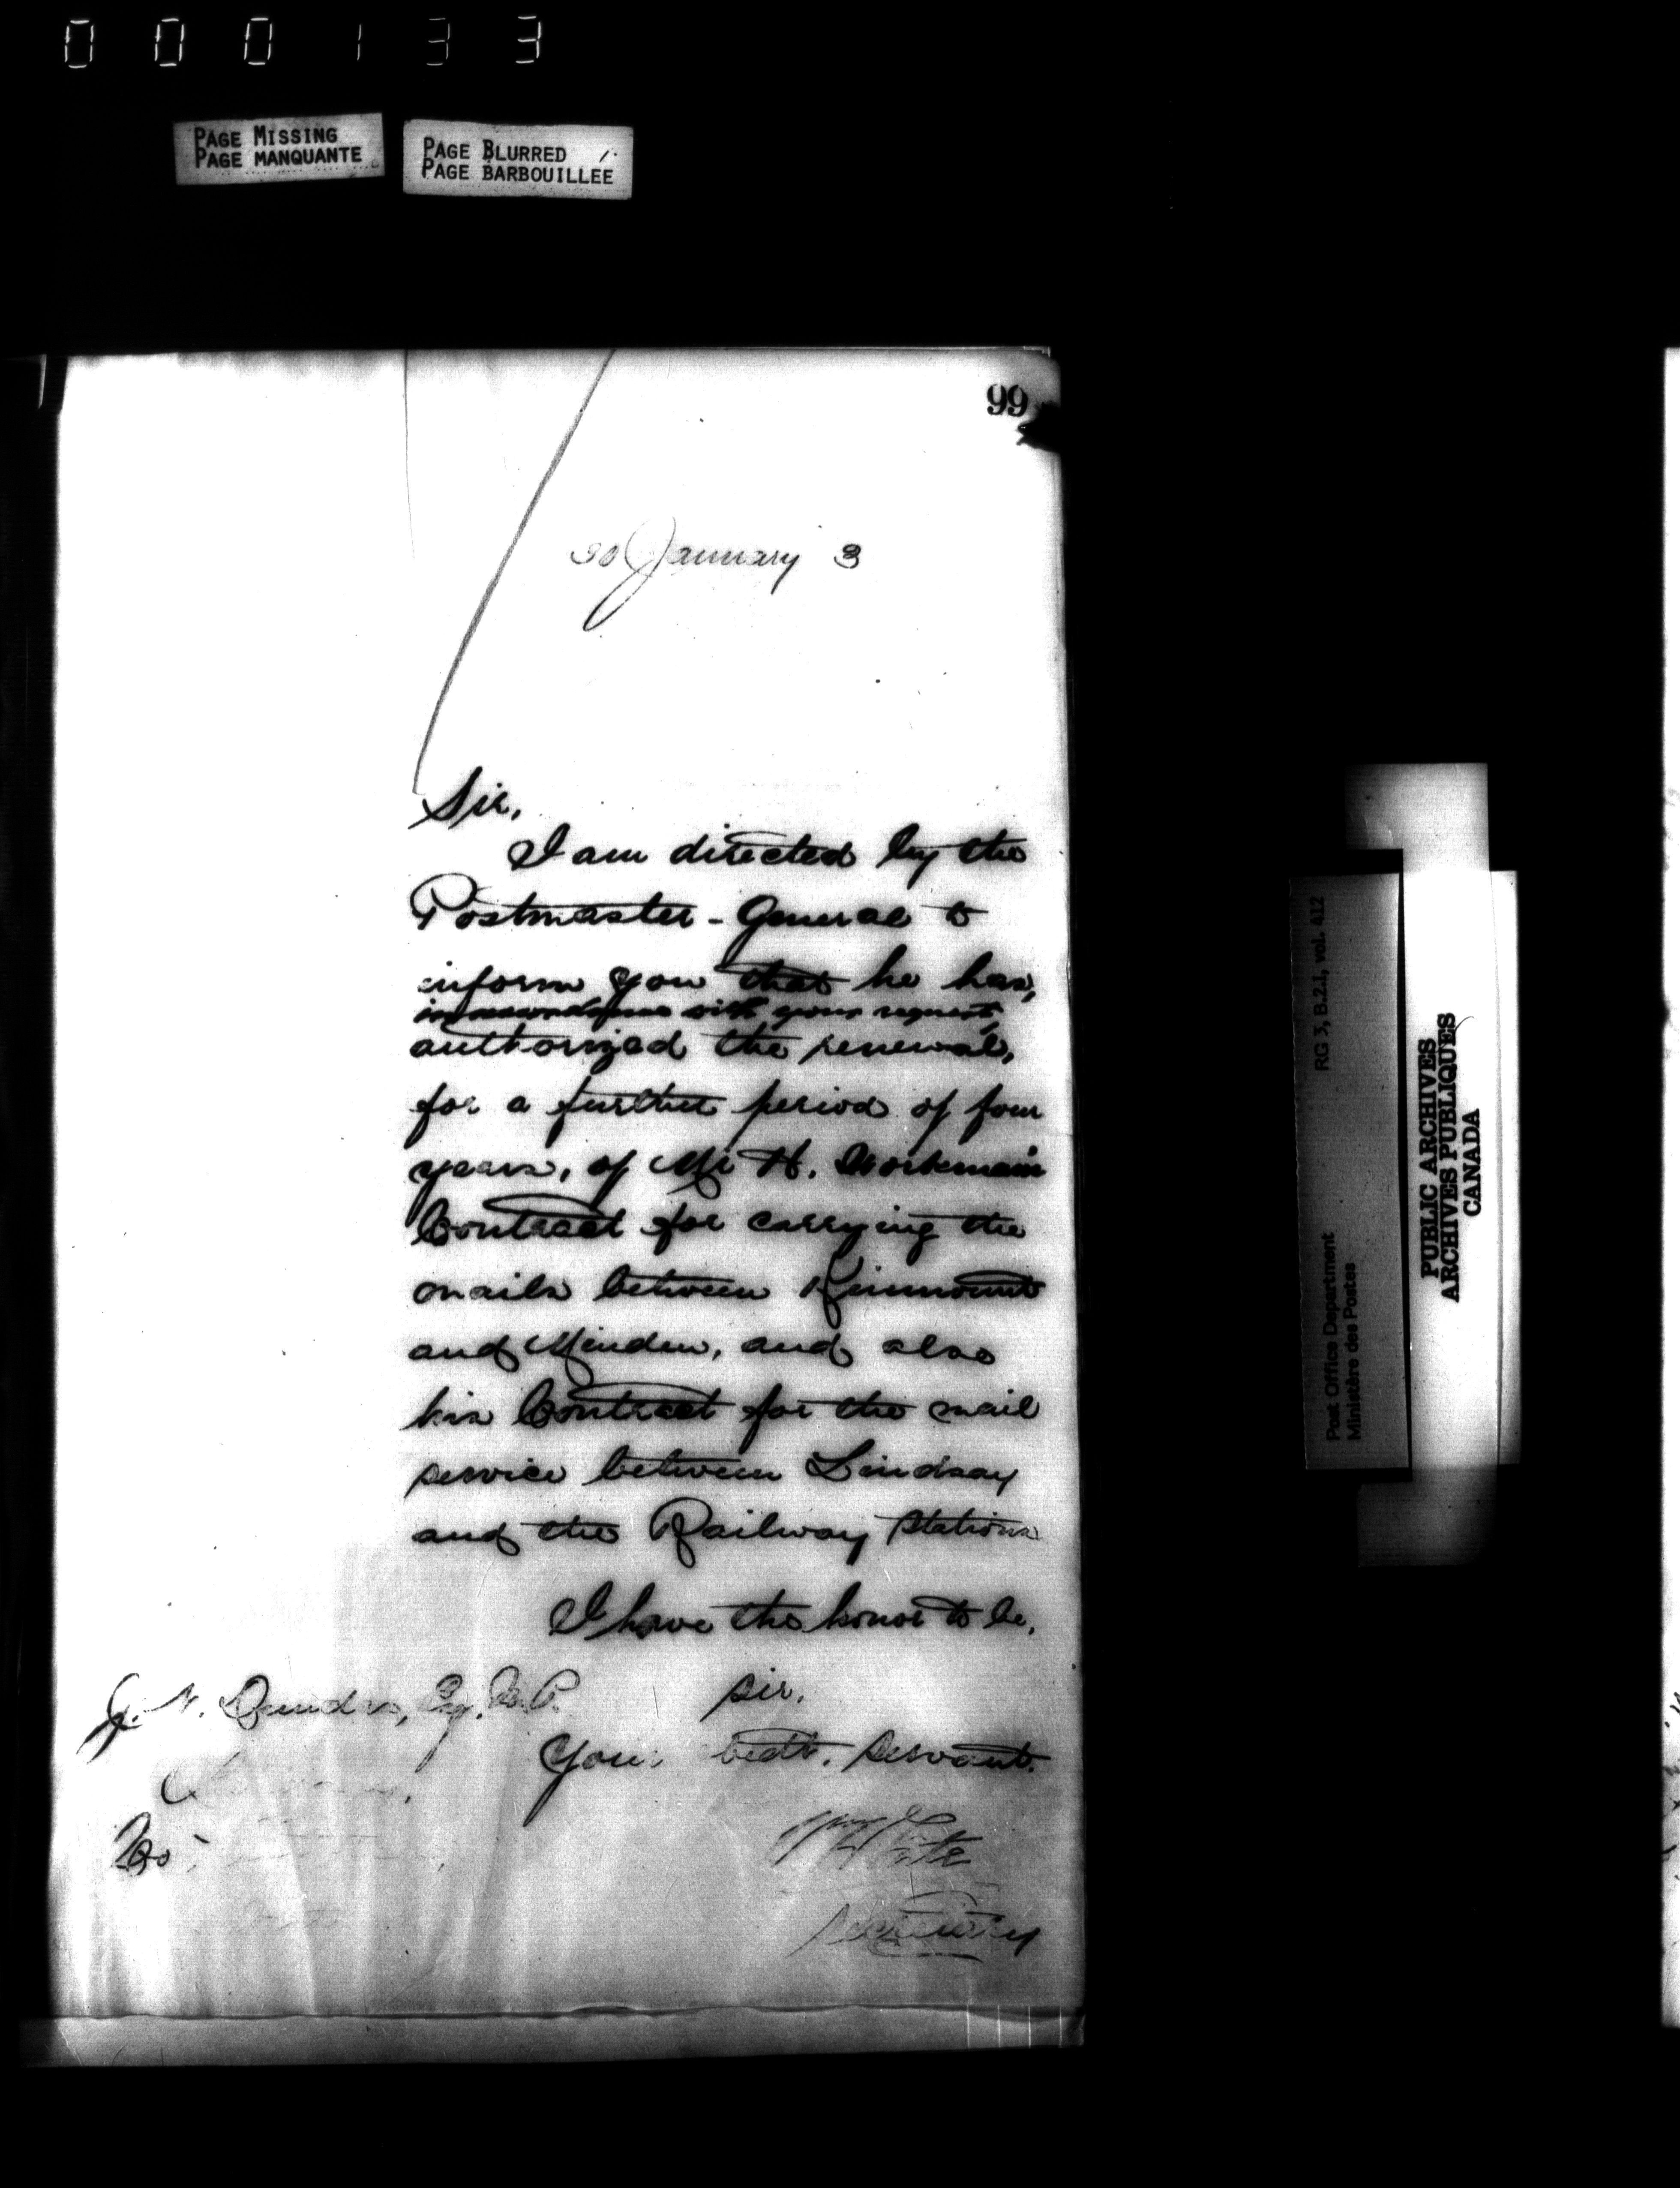 000133
PAGE MISSING
PAGE MANQUANTE
PAGE BLURRED
PAGE BARBOUILLÉE
99
30 January 3
Sir,
I am directed by the
Postmaster-General to
inform you that he has,
in accordance with your request,
authorized the renewal,
for a further period of four
years, of Mr H. Workman's
Contract for carrying the
mails between Kinmount
and Minden, and also
his Contract for the mail
service between Lindsay
and the Railway Stations
I have the honor to be,
Sir,
Your obedt. servant.
Wm White
Secretary
Esq. M.P.
RG 3, B.2.1, vol. 412
Post Office Department
Ministère des Postes
PUBLIC ARCHIVES
ARCHIVES PUBLIQUES
CANADA